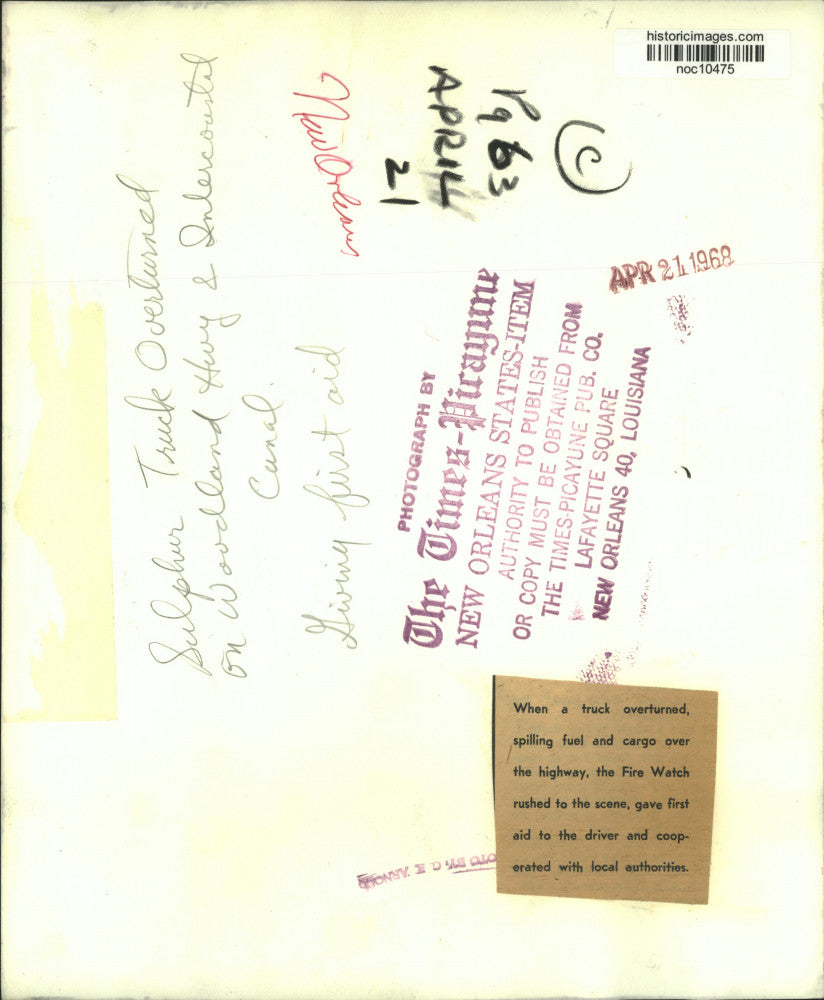 historicimages.com
noc10475
©
Pg 63
APRIL
21
New Orleans
APR 21 1968
Sulphur Truck Overturned
on Woodland Hwy & Intercoastal
Canal.
Giving first aid
PHOTOGRAPH BY
The Times-Picayune
NEW ORLEANS STATES-ITEM
AUTHORITY TO PUBLISH
OR COPY MUST BE OBTAINED FROM
THE TIMES-PICAYUNE PUB. CO.
LAFAYETTE SQUARE
NEW ORLEANS 40, LOUISIANA
When a truck overturned,
spilling fuel and cargo over
the highway, the Fire Watch
rushed to the scene, gave first
aid to the driver and coop-
erated with local authorities.
OTO BY G. E. ARNOLD